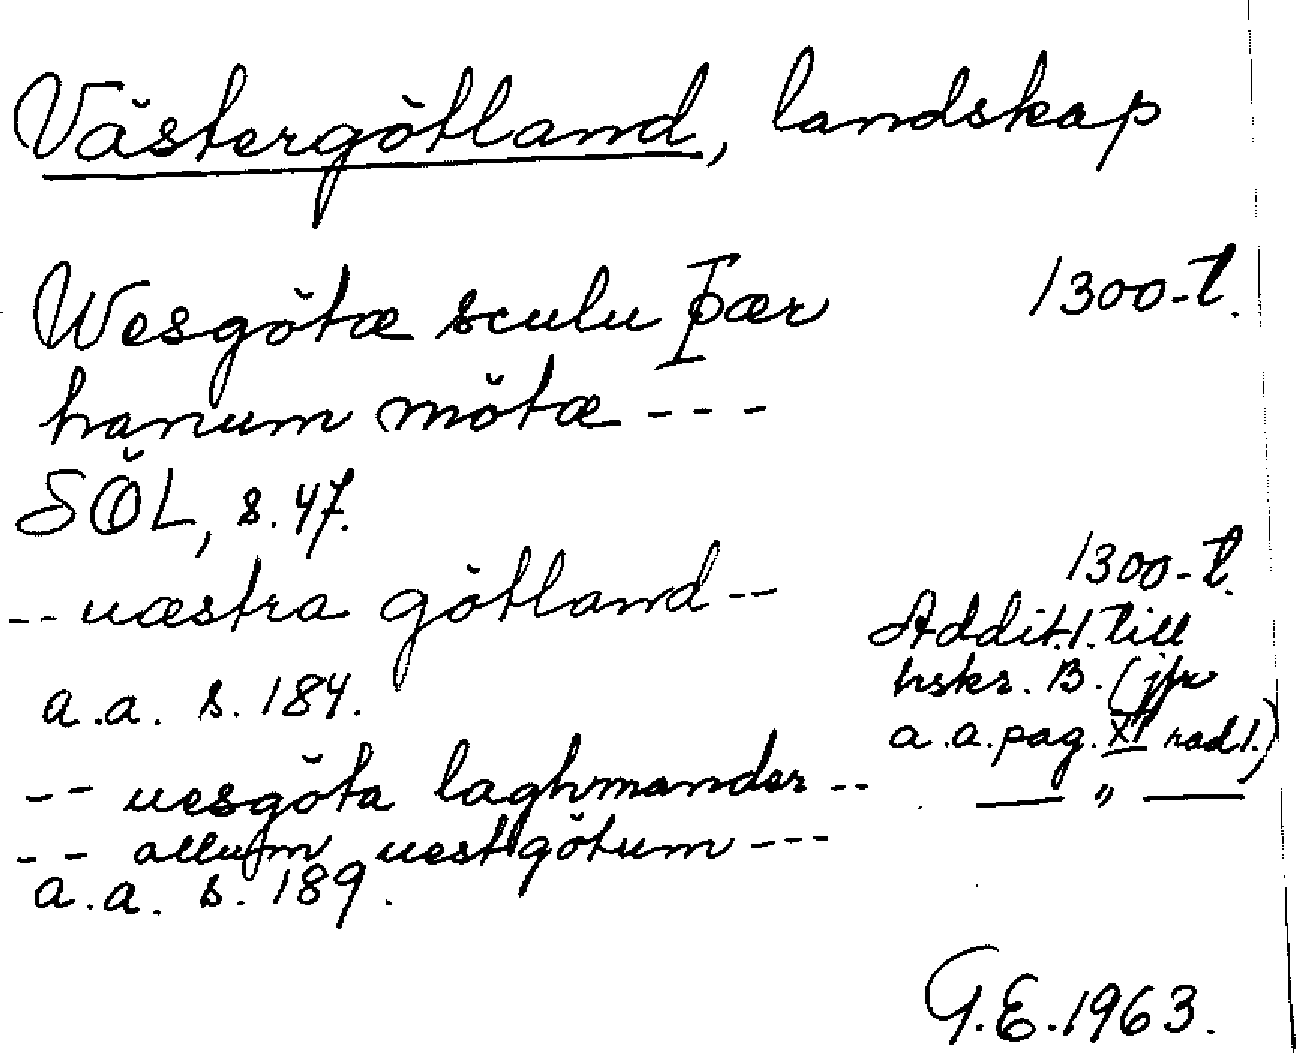 Västergötland, landskap
Wesgötæ sculu þær 1300-t.
hanum mötæ ---
SÖL, s. 47.
-- uæstra götland -- 1300-t.
Addit. 1. till
hskr. B. (jfr
a.a. s. 184.
a.a. pag. XI rad 1.)
-- uesgöta laghmander -- — „ —
-- allum uestgötum ---
a.a. s. 189.
G.E. 1963.